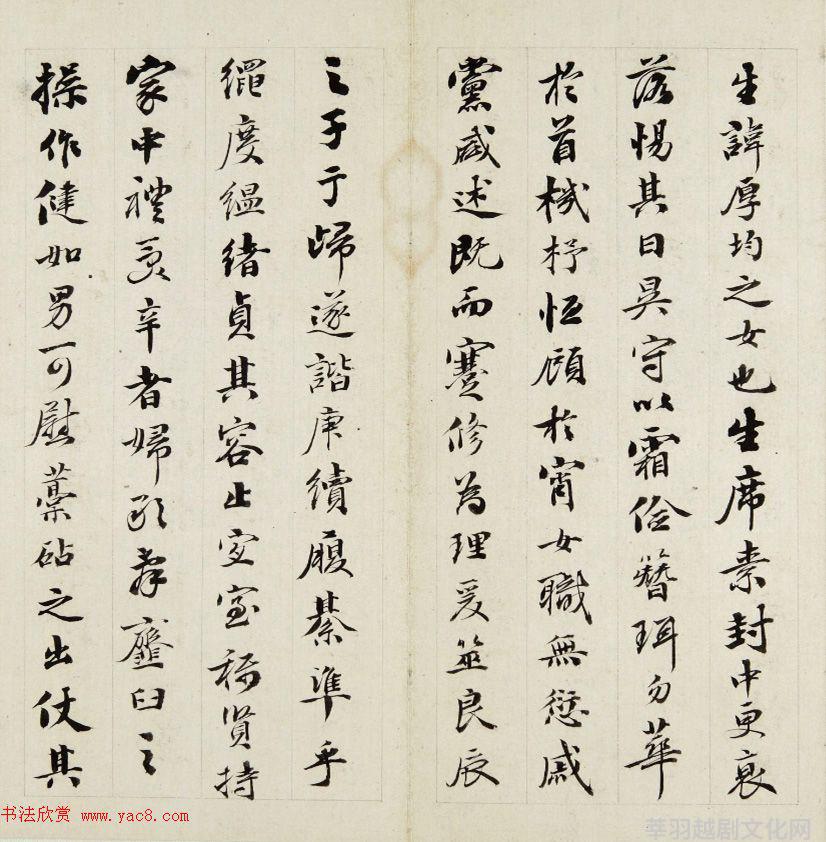 生諱厚均之女也生席素封中更衰
落惕其日昃守以霜儉簪珥勿華
於首機杼恒顧於宵女職無愆戚
黨咸述既而蹇修為理爰筮良辰
之子于歸遂諧庚續履綦準乎
繩度縕緒貞其容止宜室稱賢持
家中禮受辛者婦 齏臼之
操作健如男可慰藁砧之出仗其
书法欣赏 www.yac8.com
莘羽越剧文化网